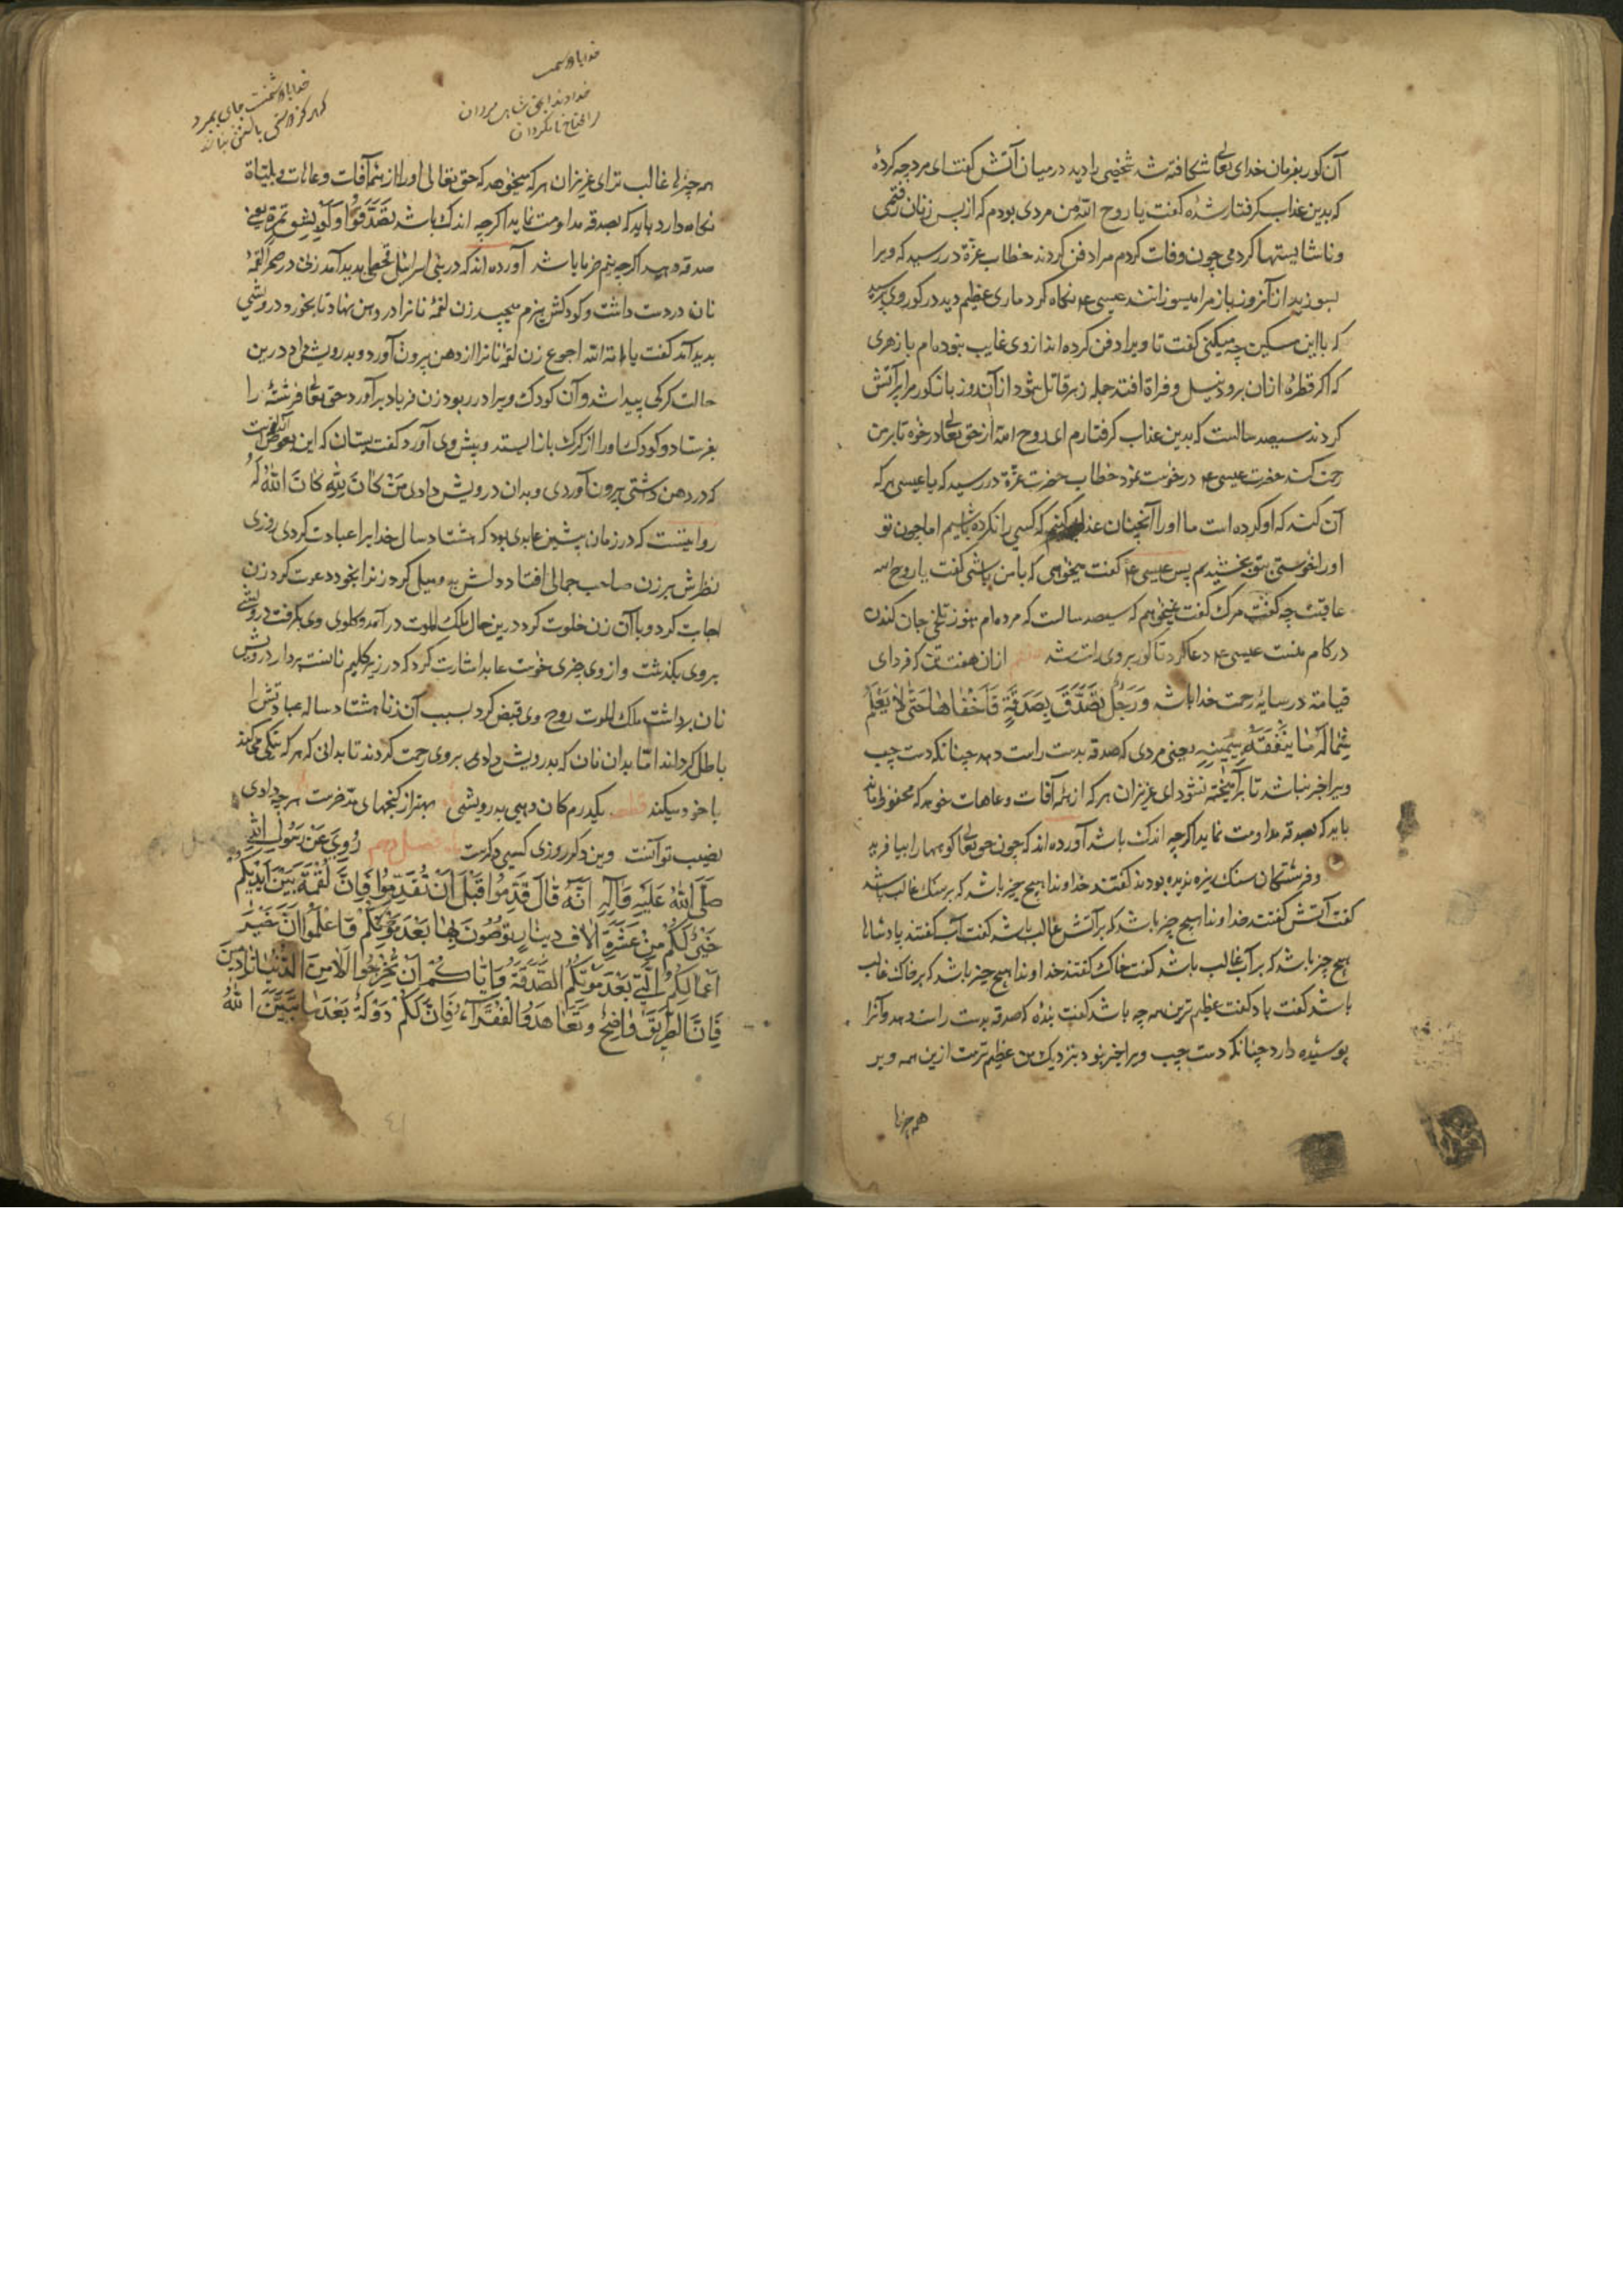 آن کور بفرمان خدای تعالی شکافته شد شخصی را دید در میان آتش گفت ای مرد چه کردهٔ
که بدین عذاب گرفتار شدهٔ گفت یا روح الله من مردی بودم که از پس زنان رفتمی
و ناشایستها کردمی چون وفات کردم مرا دفن کردند خطاب عزة در رسید که ویرا
بسوزید از آنروز باز مرا میسوزانند عیسی ع م نگاه کرد ماری عظیم دید در کور وی پرسید
که با این مسکین چه میکنی گفت تا ویرا دفن کرده اند از وی غایب نبوده ام با زهری
که اکر قطرهٔ ازان برود نیل و فراة افتد جمله زهر قاتل شود از آن روز باز کور مرا پر آتش
کردند سیصد سالست که بدین عذاب گرفتارم ای روح الله از حق تعالی در خوه تا بر من
رحمت کند حضرت عیسی ع م درخوست نمود خطاب حضرت عزة در رسید که یا عیسی هر که
آن کند که او کرده است ما او را آنچنان عذاب کنیم که کسی را نکرده باشیم اما چون تو
او را بخوستی بتو بخشیدیم پس عیسی ع م گفت میخواهی که با من باشی گفت یا روح الله
عاقبت چه گفت مرگ گفت نمیخواهم که سیصد سالست که مرده ام هنوز تلخی جان کندن
در کام منست عیسی ع م دعا کرد تا کور بر وی راست شد ازان هفت تن که فردای
قیامة در سایهٔ رحمت خدا باشد وَرَجُلٌ تَصَدَّقَ بِصَدَقَةٍ فَأَخْفَاهَا حَتّٰی لَا یَعْلَمَ
شِمَالُهُ مَا یُنْفِقُهُ بِیَمِینِهِ یعنی مردی که صدقه بدست راست دهد چنانکه دست چپ
ویرا خبر نباشد تا برآمیخته نشود ای عزیزان هر که از همه آفات و عاهات خوهد که محفوظ ماند
باید که بصدقه مداومت نماید اکرچه اندک باشد آورده اند که چون حق تعالی کوهها را بیافرید
و فرشتگان سنک ریزه ندیده بودند گفتند خداوندا هیچ چیز باشد که بر سنک غالب باشد
گفت آتش گفتند خداوندا هیچ چیز باشد که بر آتش غالب باشد گفت آب گفتند پادشاها
هیچ چیز باشد که بر آب غالب باشد گفت خاک گفتند خداوندا هیچ چیز باشد که بر خاک غالب
باشد گفت باد گفت عظیم ترین همه چه باشد گفت بندهٔ که صدقه بدست راست دهد و آنرا
پوسیده دارد چنانکه دست چپ ویرا خبر نبود بنزدیک من عظیم ترست ازین همه و بر
همه چیزها
خداوندا بحق شاه مردان
را محتاج نامردان
همه چیزها غالب تر ای عزیزان هر که میخوهد که حق تعالی او را از همه آفات و عاهات و بلیّاة
نگاه دارد باید که بصدقه مداومت نماید اکرچه اندک باشد تَصَدَّقُوا وَلَوْ بِشِقِّ تَمْرَةٍ یعنی
صدقه دهید اکرچه نیم خرما باشد آورده اند که در بنی اسرائیل قحطی پدید آمد زنی در صحرا لقمهٔ
نان در دست داشت و کودکش هیزم میچید زن لقمهٔ نانرا در دهن نهاد تا بخورد درویشی
پدید آمد گفت یا امة الله الجوع زن لقمهٔ نانرا از دهن بیرون آورد و بدرویش داد درین
حالت کرکی پیدا شد و آن کودک ویرا در ربود زن فریاد برآورد حق تعالی فرشتهٔ را
بفرستاد و کودک او را از کرک باز استد و پیش وی آورد و گفت بستان که این بعوض آن لقمه است
که در دهن داشتی بیرون آوردی و بدان درویش دادی مَنْ کَانَ لِلّٰهِ کَانَ اللّٰهُ لَهُ
روایتست که در زمان پیشین عابدی بود که هشتاد سال خدایرا عبادت کردی روزی
نظرش بر زن صاحب جمالی افتاد دلش بدو میل کرد زنرا بخود دعوت کرد زن
اجابت کرد و با آن زن خلوت کرد درین حال ملک الموت در آمد و گلوی وی بگرفت درویشی
بر وی بگذشت و از وی چیزی خوست عابد اشارت کرد که در زیر گلیم نانست بردار درویش
نان برداشت ملک الموت روح وی قبض کرد بسبب آن زنا هشتاد ساله عبادتش را
باطل کردند اما بدان نان که بدرویش دادی بر وی رحمت کردند تا بدانی که هر که نیکی میکند
با خود میکند قطعه یکدرم کان دهی بدرویشی بهتر از گنجهای مدّخرست هر چه دادی
نصیب تو آنست وین دکر روزی کسی دکرست فصل دهم رُوِیَ عَنْ رَسُولِ اللّٰهِ
صَلَّی اللّٰهُ عَلَیْهِ وَآلِهِ اَنَّهُ قَالَ قَدِّمُوا قَبْلَ اَنْ تُقَدَّمُوا فَاِنَّ لُقْمَةً بَیْنَ اَیْدِیکُمْ
خَیْرٌ لَکُمْ مِنْ عَشَرَةِ آلَافِ دِینَارٍ تُوصُونَ بِهَا بَعْدَ مَوْتِکُمْ وَاعْلَمُوا اَنَّ خَیْرَ
اَعْمَالِکُمُ الَّتِی بَعْدَ مَوْتِکُمُ الصَّدَقَةُ وَاِیَّاکُمْ اَنْ تَخْرُجُوا مِنَ الدُّنْیَا
فَاِنَّ الطَّرِیقَ وَاضِحٌ وَتَعَاهَدُوا الْفُقَرَاءَ فَاِنَّ لَکُمْ دَوْلَةً بَعْدَ